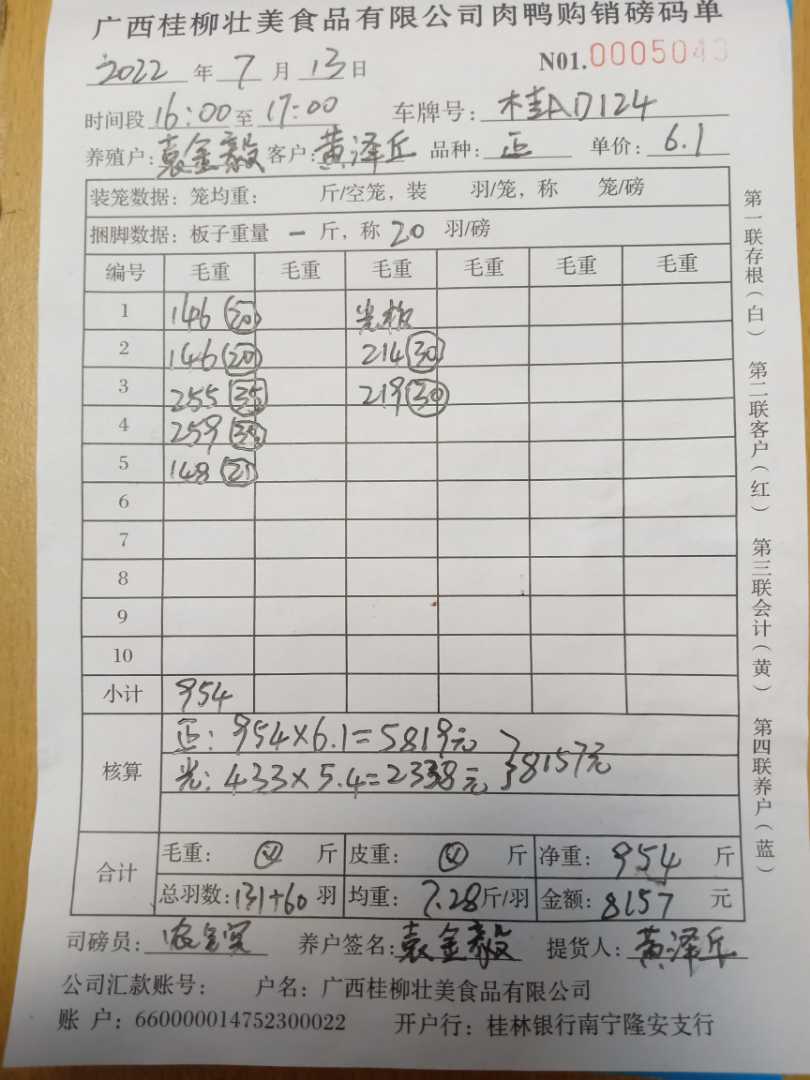 广西桂柳壮美食品有限公司肉鸭购销磅码单
2022 年 7 月 13 日 N01.0005043
时间段 16:00 至 17:00 车牌号: 桂AD124
养殖户: 袁金毅 客户: 黄泽丘 品种: 正 单价: 6.1
装笼数据: 笼均重: 斤/空笼, 装 羽/笼, 称 笼/磅
捆脚数据: 板子重量 一 斤, 称 20 羽/磅
编号 毛重 毛重 毛重 毛重 毛重 毛重
1 146 (20) 光
2 146 (20) 214 (30)
3 255 (35) 219 (30)
4 259 (35)
5 148 (21)
6
7
8
9
10
小计 954
核算 正: 954×6.1=5819元 } 8157元
光: 433×5.4=2338元
合计 毛重: 斤 皮重: 斤 净重: 954 斤
总羽数: 131+60 羽 均重: 7.28 斤/羽 金额: 8157 元
司磅员: 养户签名: 袁金毅 提货人: 黄泽丘
公司汇款账号: 户名: 广西桂柳壮美食品有限公司
账 户: 660000014752300022 开户行: 桂林银行南宁隆安支行
第一联存根(白) 第二联客户(红) 第三联会计(黄) 第四联养户(蓝)